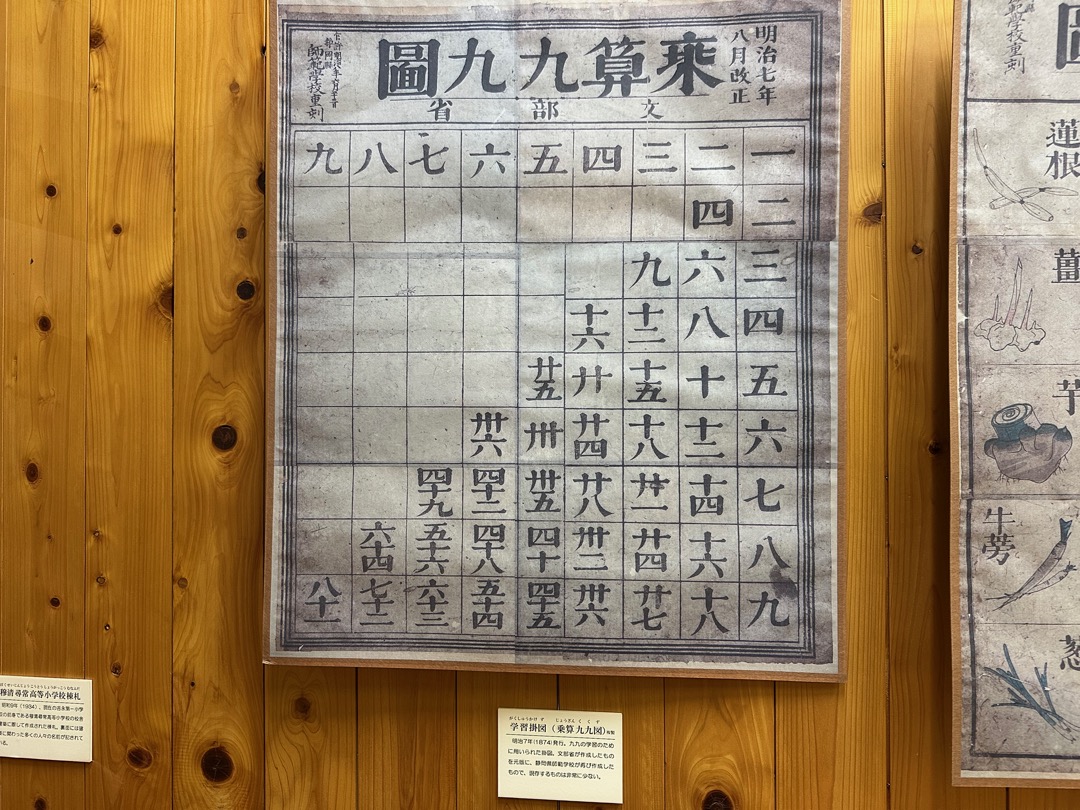 明治七年
八月改正
乘算九九圖
文部省
静岡縣
師範學校重刻
一 二 三 四 五 六 七 八 九
二 四
三 六 九
四 八 十二 十六
五 十 十五 廿 廿五
六 十二 十八 廿四 卅 卅六
七 十四 廿一 廿八 卅五 四十二 四十九
八 十六 廿四 卅二 四十 四十八 五十六 六十四
九 十八 廿七 卅六 四十五 五十四 六十三 七十二 八十一
圖
範學校重刻
蓮根
薑
芋
牛蒡
葱
穆清尋常高等小学校棟札
昭和9年(1934)、現在の吉永第一小学
がくしゅうかけず じょうざんくくず
学習掛図(乗算九九図)複製
明治7年(1874)発行。九九の学習のため
に用いられた掛図。文部省が作成したもの
を元版に、静岡県師範学校が再び作成した
もので、現存するものは非常に少ない。